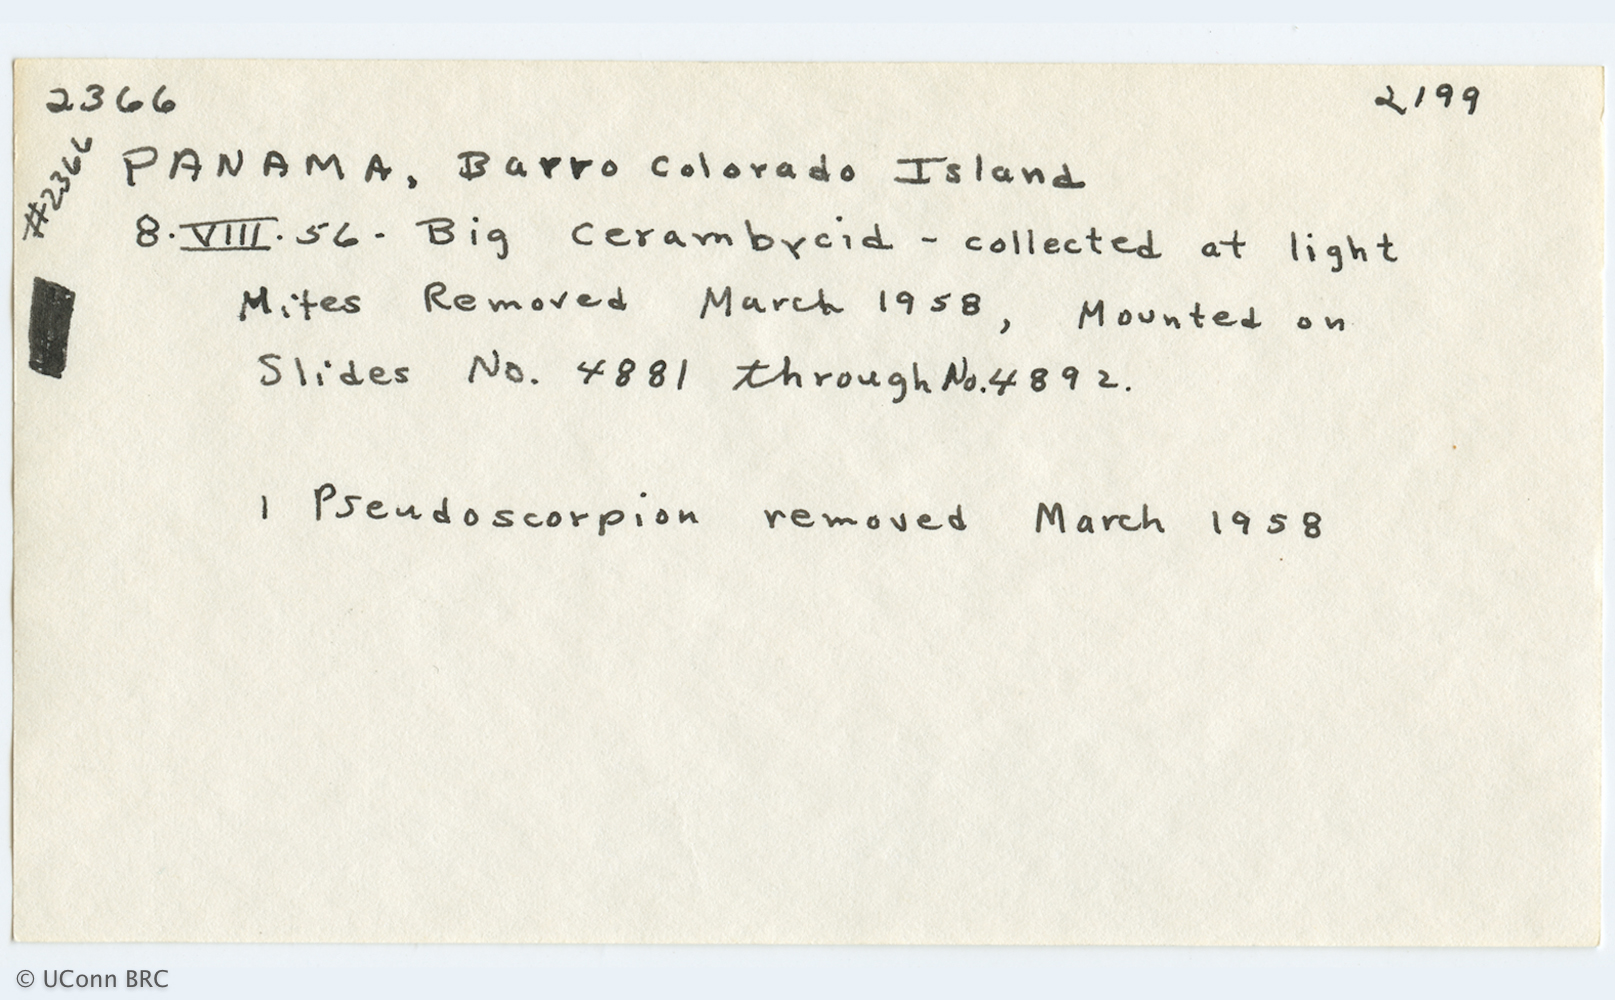 2366
2199
#2366
PANAMA, Barro Colorado Island
8.VIII.56. Big Cerambycid - collected at light
Mites Removed March 1958, Mounted on
Slides No. 4881 through No. 4892.
1 Pseudoscorpion removed March 1958
© UConn BRC